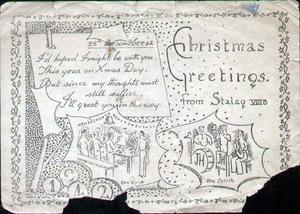 25th December 42
I'd hoped I might be with you
This year on Xmas Day.
But since my thoughts must
still suffice,
I'll greet you in this way.
Christmas
Greetings.
from Stalag VIIIB
1942